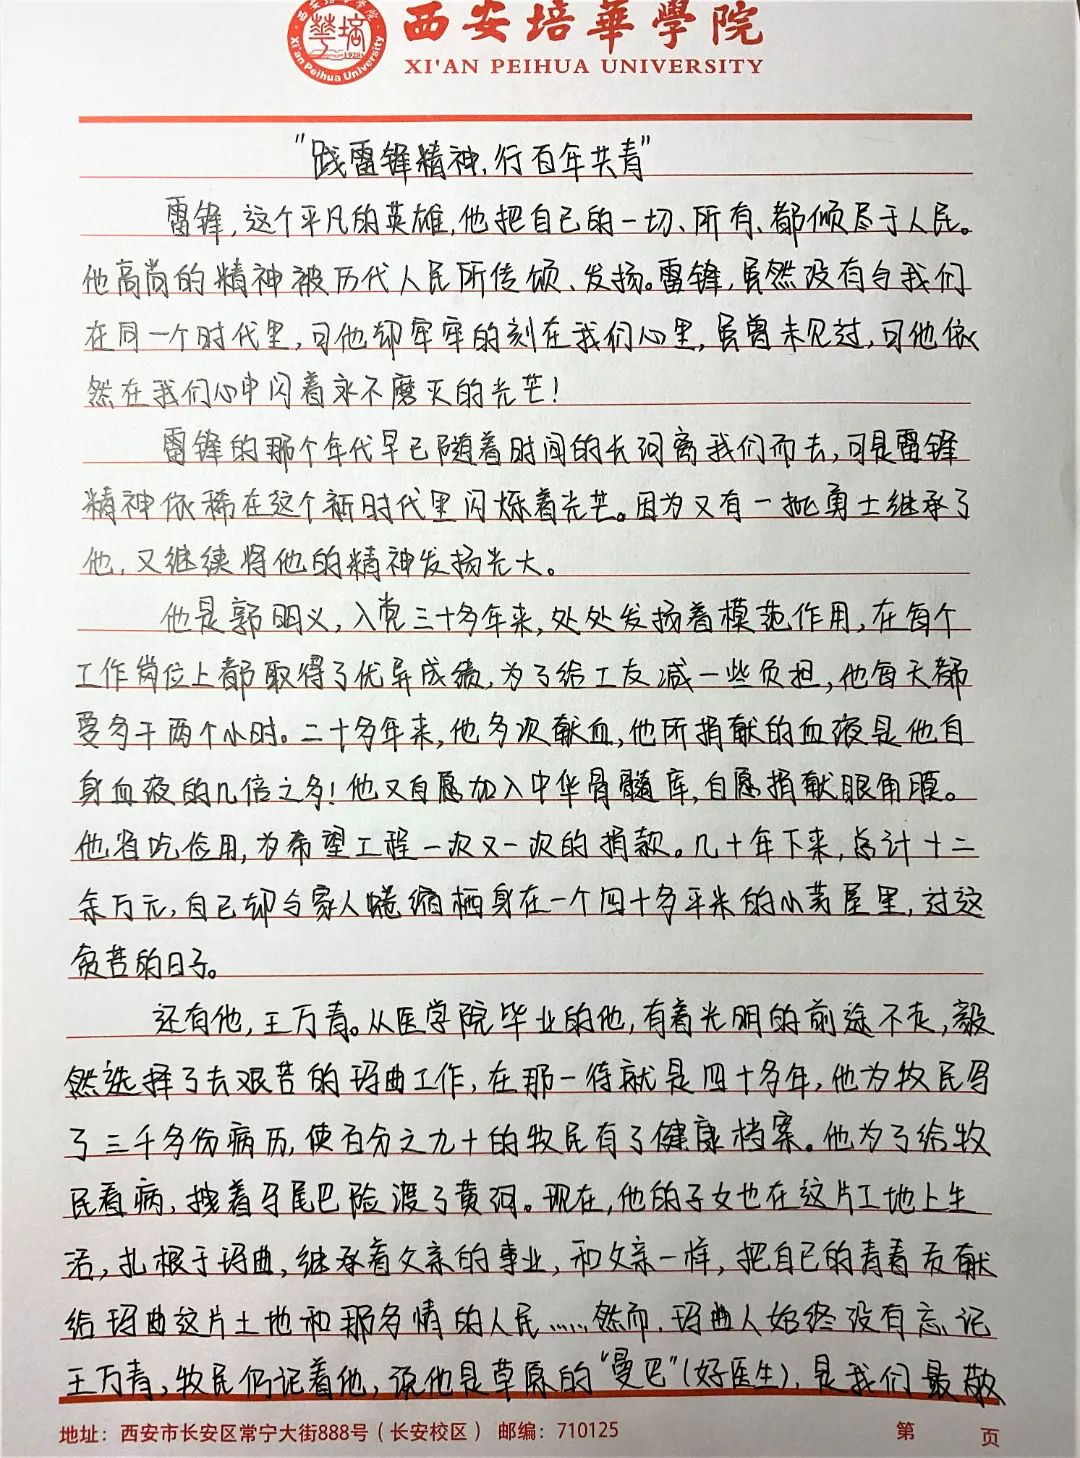 西安培華學院
XI'AN PEIHUA UNIVERSITY
Xi'an Peihua University
1928
"践雷锋精神,行百年共青"
雷锋,这个平凡的英雄,他把自己的一切、所有、都倾尽于人民。
他高尚的精神被历代人民所传颂、发扬。雷锋,虽然没有与我们
在同一个时代里,可他却牢牢的刻在我们心里,虽曾未见过,可他依
然在我们心中闪着永不磨灭的光芒!
雷锋的那个年代早已随着时间的长河离我们而去,可是雷锋
精神依稀在这个新时代里闪烁着光芒。因为又有一批勇士继承了
他,又继续将他的精神发扬光大。
他是郭明义,入党三十多年来,处处发扬着模范作用,在每个
工作岗位上都取得了优异成绩,为了给工友减一些负担,他每天都
要多干两个小时。二十多年来,他多次献血,他所捐献的血液是他自
身血液的几倍之多!他又自愿加入中华骨髓库,自愿捐献眼角膜。
他省吃俭用,为希望工程一次又一次的捐款。几十年下来,总计十二
余万元,自己却与家人蜷缩栖身在一个四十多平米的小芳屋里,过这
贫苦的日子。
还有他,王万青。从医学院毕业的他,有着光明的前途不走,毅
然选择了去艰苦的玛曲工作,在那一待就是四十多年,他为牧民写
了三千多份病历,使百分之九十的牧民有了健康档案。他为了给牧
民看病,拽着牙尾巴险渡了黄河。现在,他的子女也在这片工地上生
活,扎根于玛曲,继承着父亲的事业,和父亲一样,把自己的青春贡献
给玛曲这片土地和那多情的人民……然而,玛曲人始终没有忘记
王万青,牧民们记着他,说他是草原的"曼巴"(好医生),是我们最敬
地址:西安市长安区常宁大街888号(长安校区) 邮编:710125
第 页